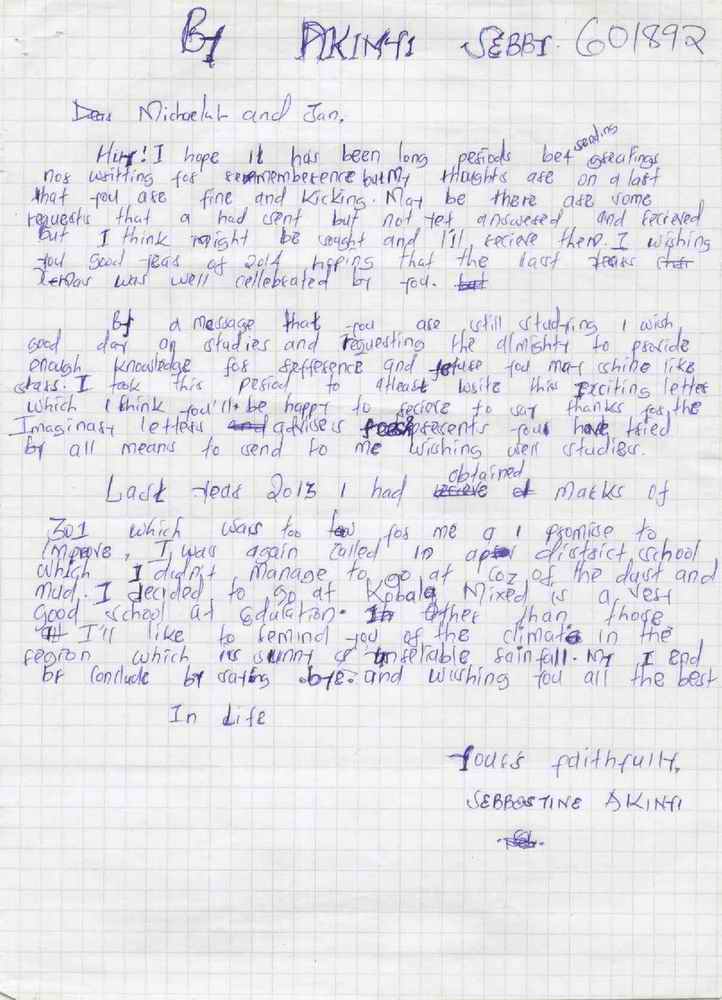 By AKINYI SEBBY. 601892
Dear Michaelah and Jan,
Hiy! I hope it has been long periods bet sending greatings
nor writting for rememberence but my thoughts are on a last
that you are fine and kicking. May be there are some
requests that a had sent but not yet answered and recieved
But I think might be caught and I'll recieve them. I wishing
you good year of 2014 hoping that the last years
Xmas was well cellebrated by you.
By a message that you are still studying I wish
good day on studies and requesting the almighty to provide
enough knowledge for refference and future you may schine like
stars. I took this period to atleast write this Exciting letter
which I think you'll be happy to recieve to say thanks for the
Imaginary letters advisers presents your have tried
by all means to send to me wishing well studies.
Last year 2013 I had obtained marks of
301 which wars too few for me a I promise to
Improve, I was again called in a district school
which I didn't manage to go at coz of the dust and
mud. I decided to go at Kobala Mixed is a very
good school at Education. Other than those
I'll like to remind you of the climate in the
region which is sunny & unreliable rainfall. My I end
by conclude by saying bye and wishing you all the best
In Life
Your's faithfully,
SEBBOSTINE AKINYI